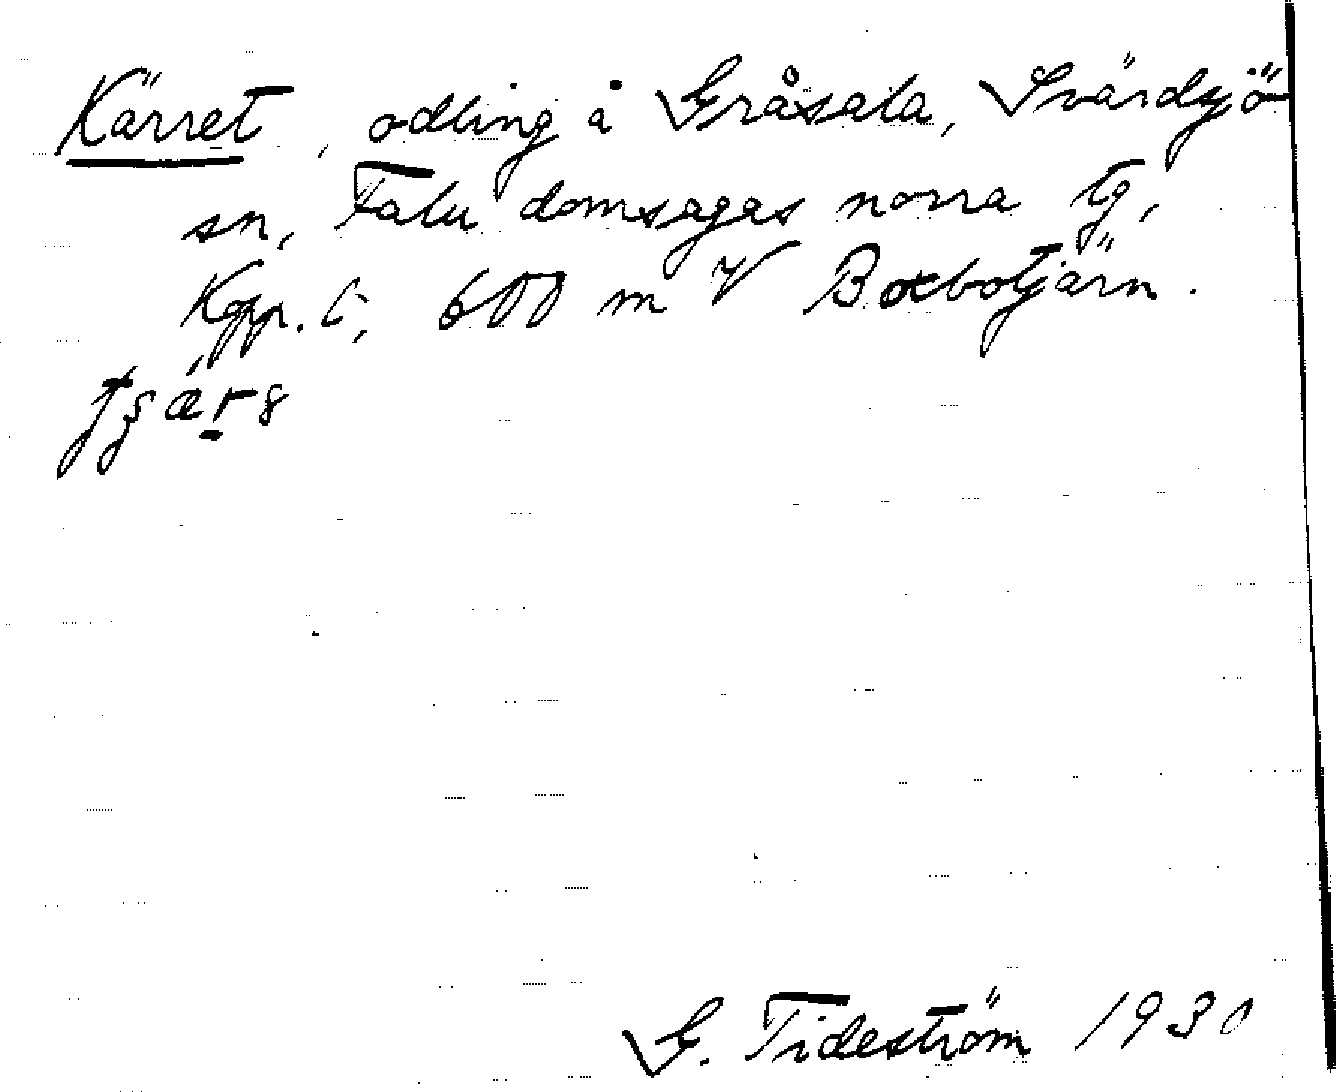 Kärret, odling å Gråsala, Svärdsjö
sn, Falu domsagas norra tg,
Kopp. l; 600 m V Borbotjärn.
G. Tideström 1930